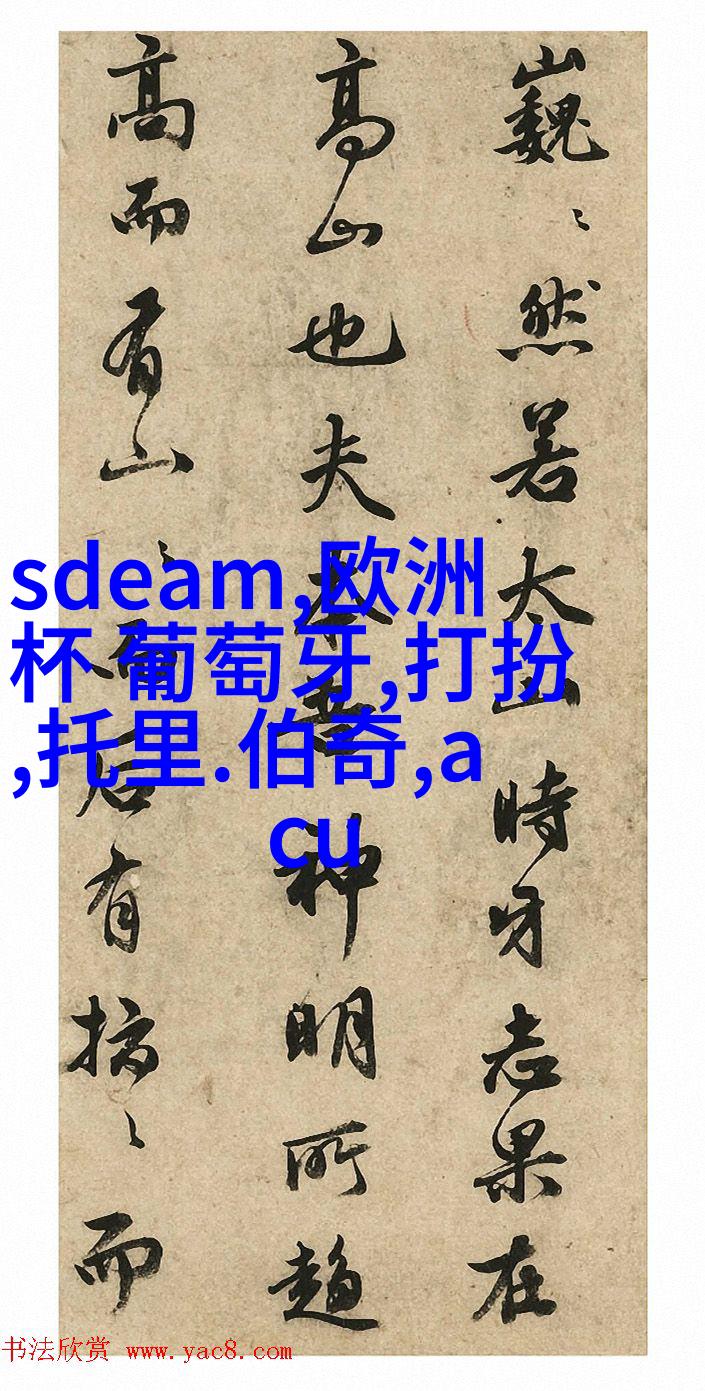 巍〻然若太山時牙志果在
高山也夫神明所趨
高而有山〻有〻而
sdeam,欧洲
杯 葡萄牙,打扮
,托里.伯奇,a
cu
书法欣赏 www.yac8.com